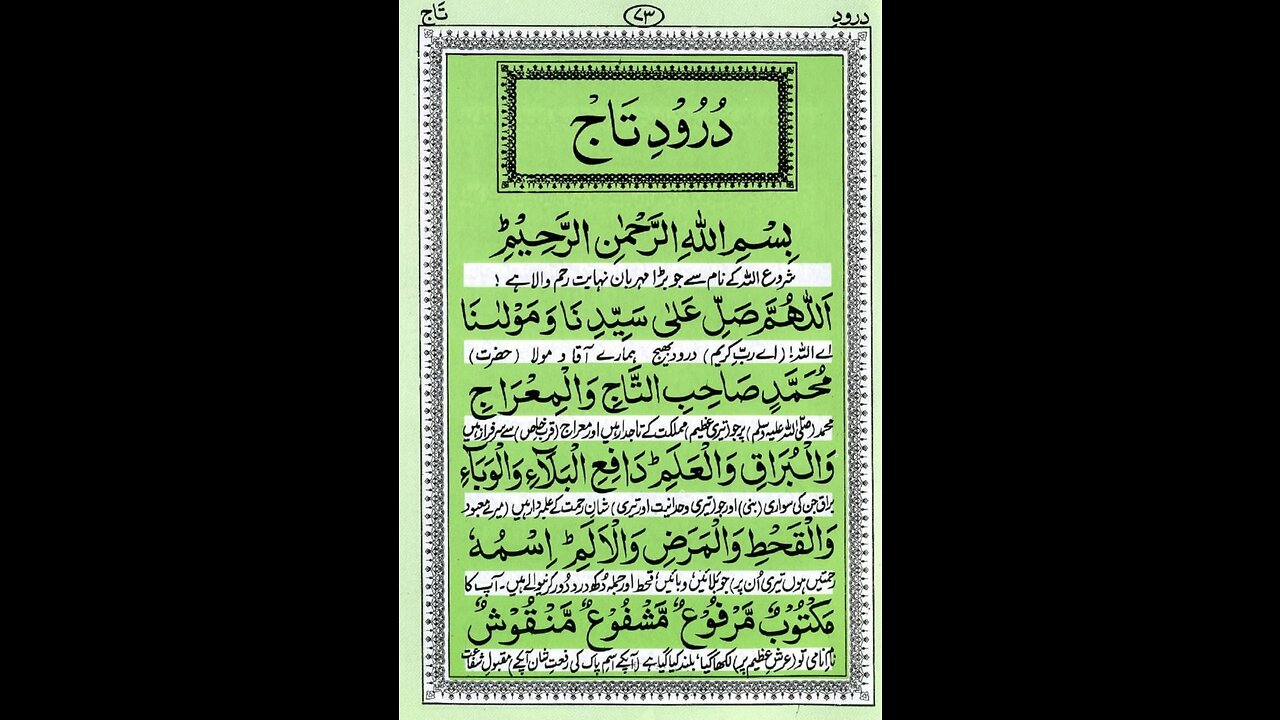 درود ۷۳ تاج
دُرُوْدِ تَاجْ
بِسْمِ اللّٰهِ الرَّحْمٰنِ الرَّحِيْمِؕ
شروع اللہ کے نام سے جو بڑا مہربان نہایت رحم والا ہے !
اَللّٰهُمَّ صَلِّ عَلٰى سَيِّدِنَا وَمَوْلٰىنَا
اے اللہ! (اے ربِّ کریم) درود بھیج ہمارے آقا و مولا (حضرت)
مُحَمَّدٍ صَاحِبِ التَّاجِ وَالْمِعْرَاجِ
محمد (صلی اللہ علیہ وسلم) پر جو (تیری عظیم) مملکت کے تاجدار ہیں اور معراج (قربِ خاص) سے سرفراز ہیں
وَالْبُرَاقِ وَالْعَلَمِؕ دَافِعِ الْبَلَآءِ وَالْوَبَآءِ
براق جن کی سواری (بنی) اور جو (تیری وحدانیت اور تیری) شانِ رحمت کے علمبردار ہیں (میرے معبود
وَالْقَحْطِ وَالْمَرَضِ وَالْاَلَمِؕ اِسْمُهٗ
رحمتیں ہوں تیری اُن پر) جو بلائیں، وبائیں، قحط اور جملہ دُکھ درد دُور کرنیوالے ہیں۔ آپ کا
مَكْتُوْبٌ مَّرْفُوْعٌ مَّشْفُوْعٌ مَّنْقُوْشٌ
نامِ نامی تو (عرشِ عظیم پر) لکھا گیا، بلند کیا گیا ہے (آپکے اسمِ پاک کی رفعتِ شان آپکے) مقبولِ شفاعت